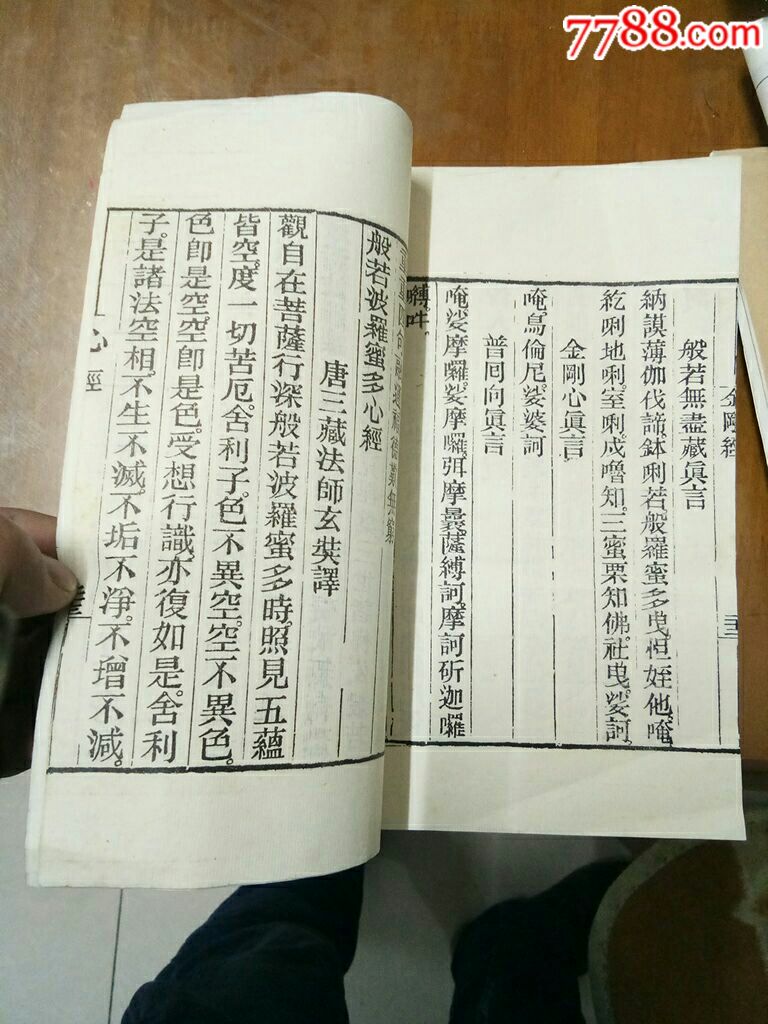 7788.com
金剛經
般若無盡藏眞言
納謨薄伽伐諦鉢唎若般羅蜜多曳怛姪他唵
紇唎地唎室唎戍嚕知三蜜栗知佛社曳娑訶
金剛心眞言
唵烏倫尼娑婆訶
普囘向眞言
唵娑摩囉娑摩囉弭摩曩薩縛訶摩訶斫迦囉
嚩吽。
般若波羅蜜多心經
唐三藏法師玄奘譯
觀自在菩薩行深般若波羅蜜多時。照見五蘊
皆空。度一切苦厄。舍利子。色不異空。空不異色。
色卽是空。空卽是色。受想行識。亦復如是。舍利
子。是諸法空相。不生不滅。不垢不淨。不增不減。
心經